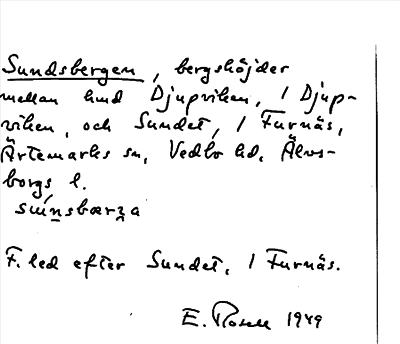 Sundsbergen, bergshöjder
mellan hmd Djupviken, 1 Djup-
viken, och Sundet, 1 Furnäs,
Ärtemarks sn, Vedbo hd, Älvs-
borgs l.
F. led efter Sundet, 1 Furnäs.
E. Rosell 1949